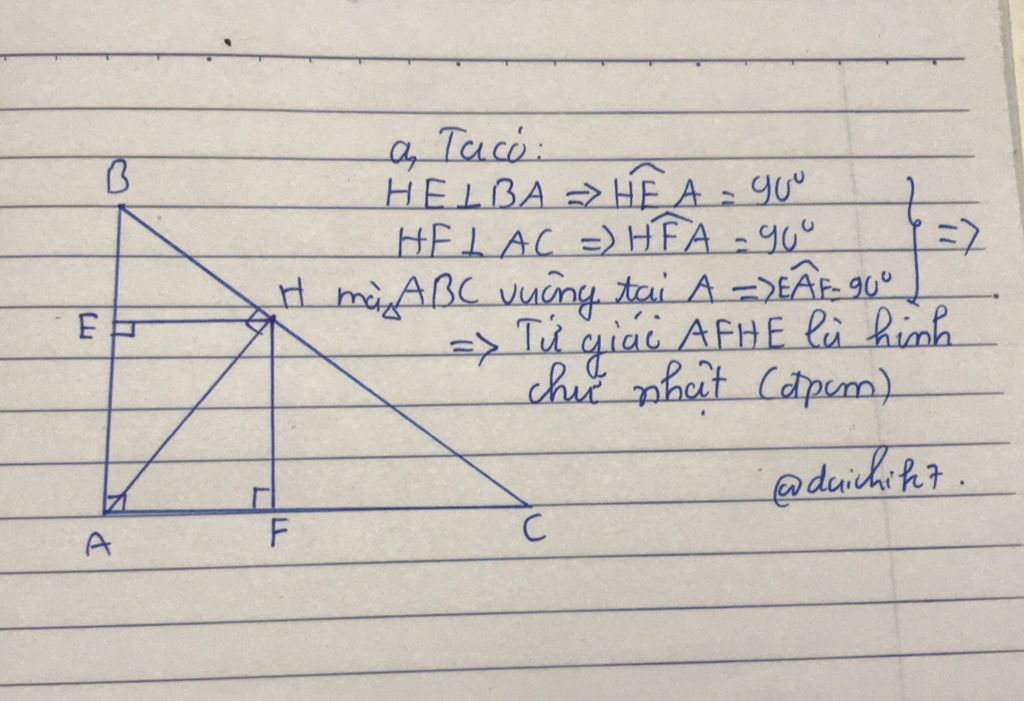 a, Ta có:
HE⊥BA => HÊA = 90°
HF⊥AC => HF̂A = 90°
mà △ABC vuông tại A => EÂF = 90° } =>
=> Tứ giác AFHE là hình
chữ nhật (đpcm)
@daichik7.
B
H
E
A
F
C